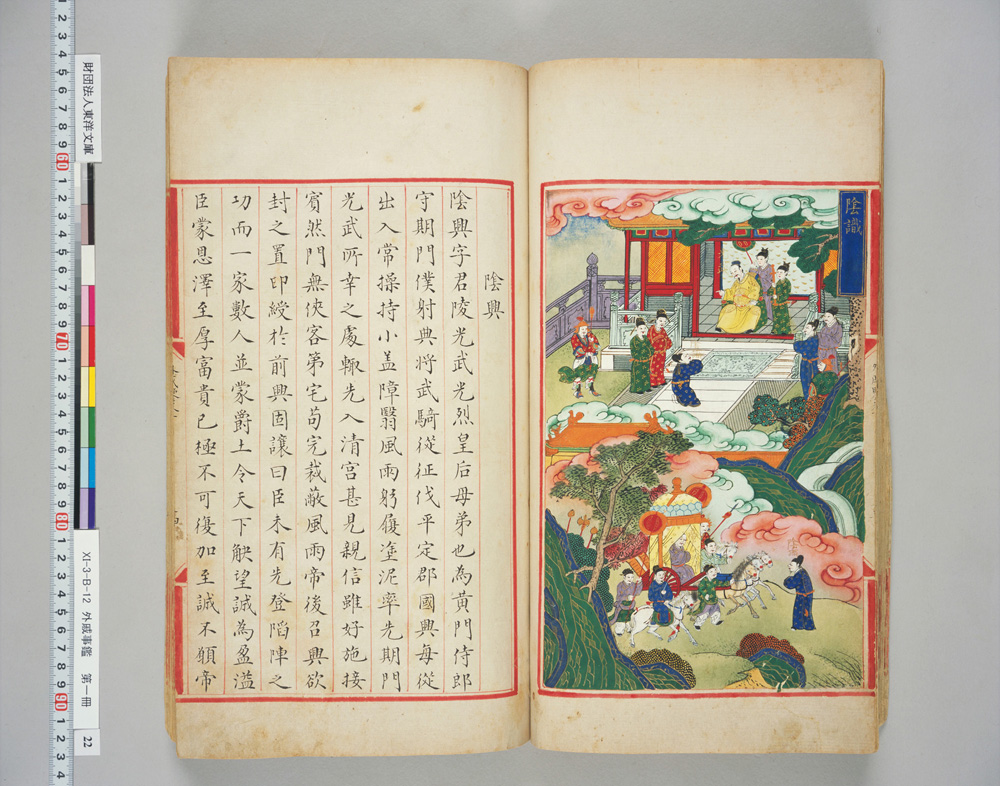 陰識
陰興
陰興字君陵光武光烈皇后母弟也為黃門侍郎
守期門僕射典將武騎從征伐平定郡國興每從
出入常操持小盖障翳風雨躬履塗泥率先期門
光武所幸之處輙先入清宮甚見親信雖好施接
賓然門無俠客第宅苟完裁蔽風雨帝後召興欲
封之置印綬於前興固讓曰臣未有先登陷陣之
功而一家數人並蒙爵土令天下觖望誠為盈溢
臣蒙恩澤至厚富貴已極不可復加至誠不願帝
財団法人東洋文庫
XI-3-B-12 外戚事鑑 第一冊
22